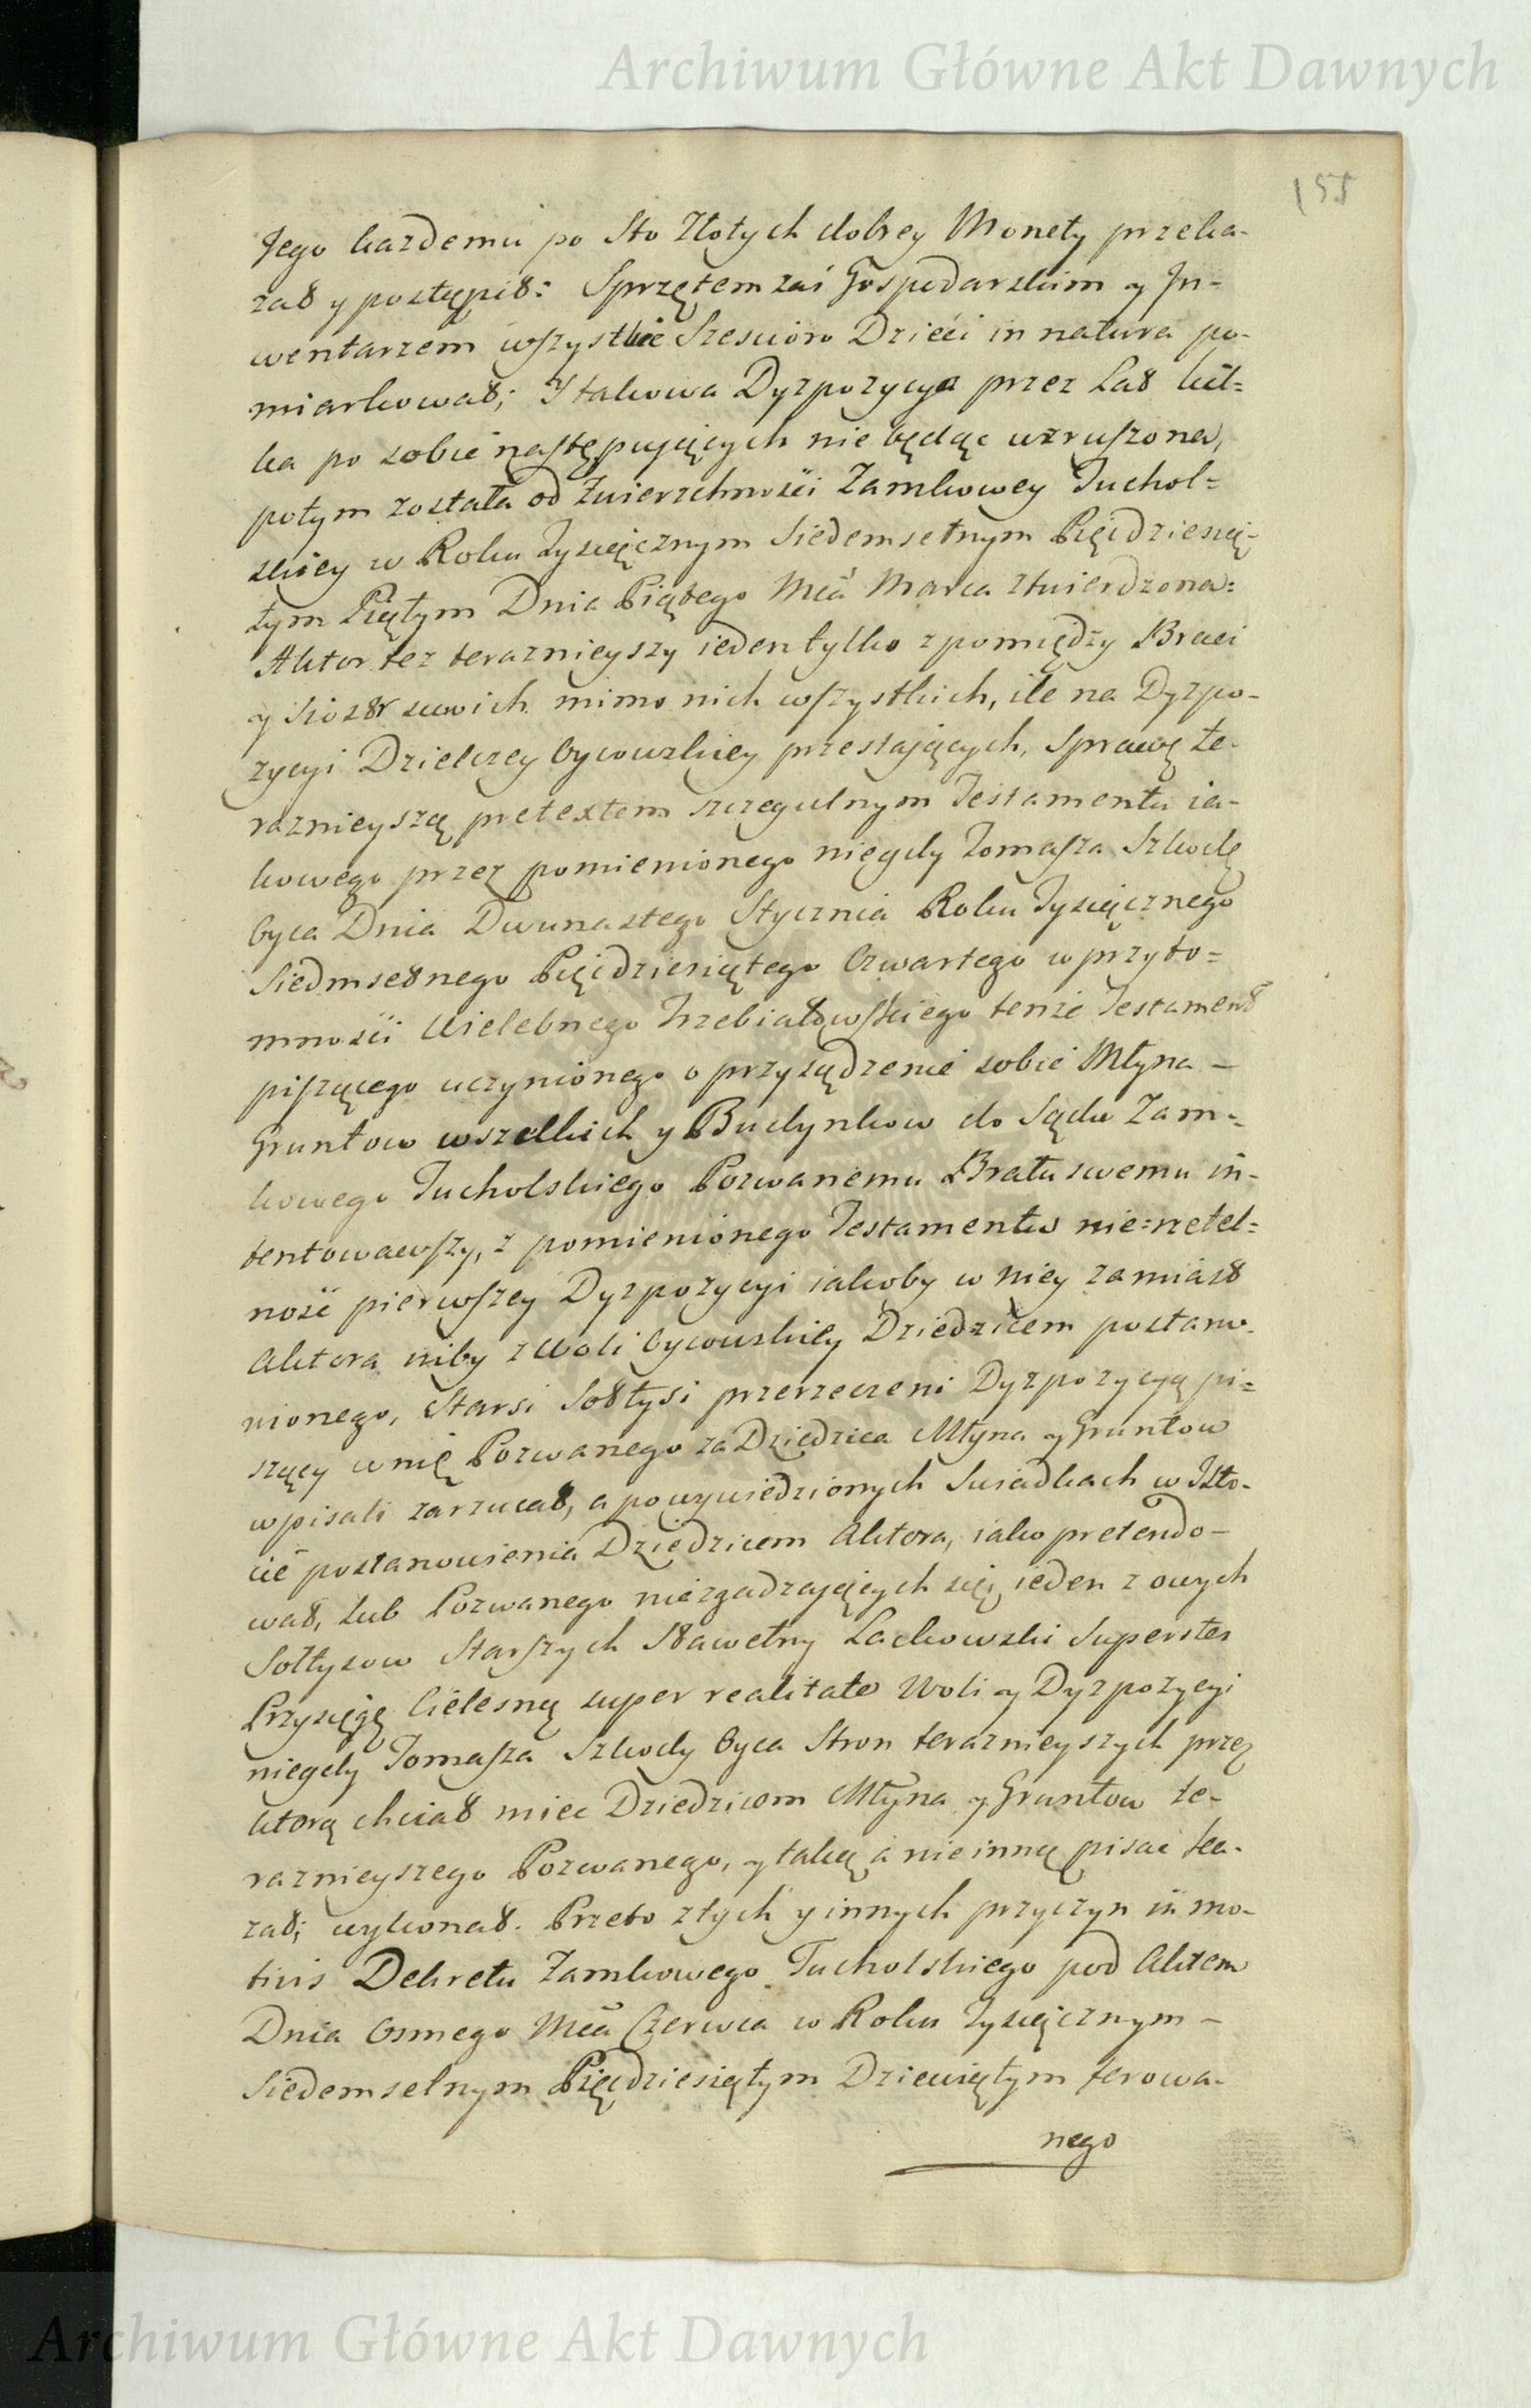 Archiwum Główne Akt Dawnych
155
Jego kazdemu po Sto Złotych dobrey Monety przeka-
zał y postąpił: Sprzętem zaś Gospodarskim y In-
wentarzem wszystkie Sześcioro Dzieći in natura po-
miarkował; Y takowa Dyzpozycya przez Lat kil=
ka po sobie następuiących nie będąc wzruszona,
potym została od Zwierzchnośći Zamkowey Tuchol=
skiey w Roku Tysiącznym Siedemsetnym Pięćdziesią-
tym Piątym Dnia Piątego Mca Marca ztwierdzona:
Aktor tez teraznieyszy ieden tylko z pomiędzy Braci
y Siostr swoich mimo nich wszystkich, ile na Dyzpo-
zycyi Dzielczey Oycowskiey przestaiących, Sprawę te-
raznieyszą pretextem szczegulnym Testamentu ia-
kowego przez pomienionego niegdy Tomasza Szkodę
Oyca Dnia Dwunastego Stycznia Roku Tysiącznego
Siedmsetnego Pięćdziesiątego Czwartego w przyto=
mnośći Wielebnego Trzebiatowskiego tenże Testament
piszącego uczynionego o przysądzenie sobie Młyna –
Gruntow wszelkich y Budynkow do Sądu Zam-
kowego Tucholskiego Pozwanemu Bratu swemu in-
tentowawszy, z pomienionego Testamentu nie=rzetel=
ność pierwszey Dyzpozycyi iakoby w niey zamiast
Aktora niby z Woli Oycowskiey Dziedzicem postano-
wionego, Starsi Sołtysi przerzeczeni Dyzpozycyą pi=
szący w nię Pozwanego za Dziedzica Młyna y Gruntow
wpisali zarzucał, a po wywiedzionych Swiadkach w Isto-
cie postanowienia Dziedzicem Aktora, iako pretendo-
wał, lub Pozwanego niezgadzaiących się, ieden z owych
Sołtysow Starszych Sławetny Lackowski Superstes
Przysięgę Cielesną super realitate Woli y Dyzpozycyi
niegdy Tomasza Szkody Oyca Stron teraznieyszych przez
ktorą chciał miec Dziedzicem Młyna y Gruntow te-
raznieyszego Pozwanego, y taką a nie inną pisac ka-
zał; wykonał. Przeto z tych y innych przyczyn in mo-
tivis Dekretu Zamkowego Tucholskiego pod Aktem
Dnia Osmego Mca Czerwca w Roku Tysiącznym –
Siedemsetnym Pięćdziesiątym Dziewiątym ferowa-
nego
Archiwum Główne Akt Dawnych